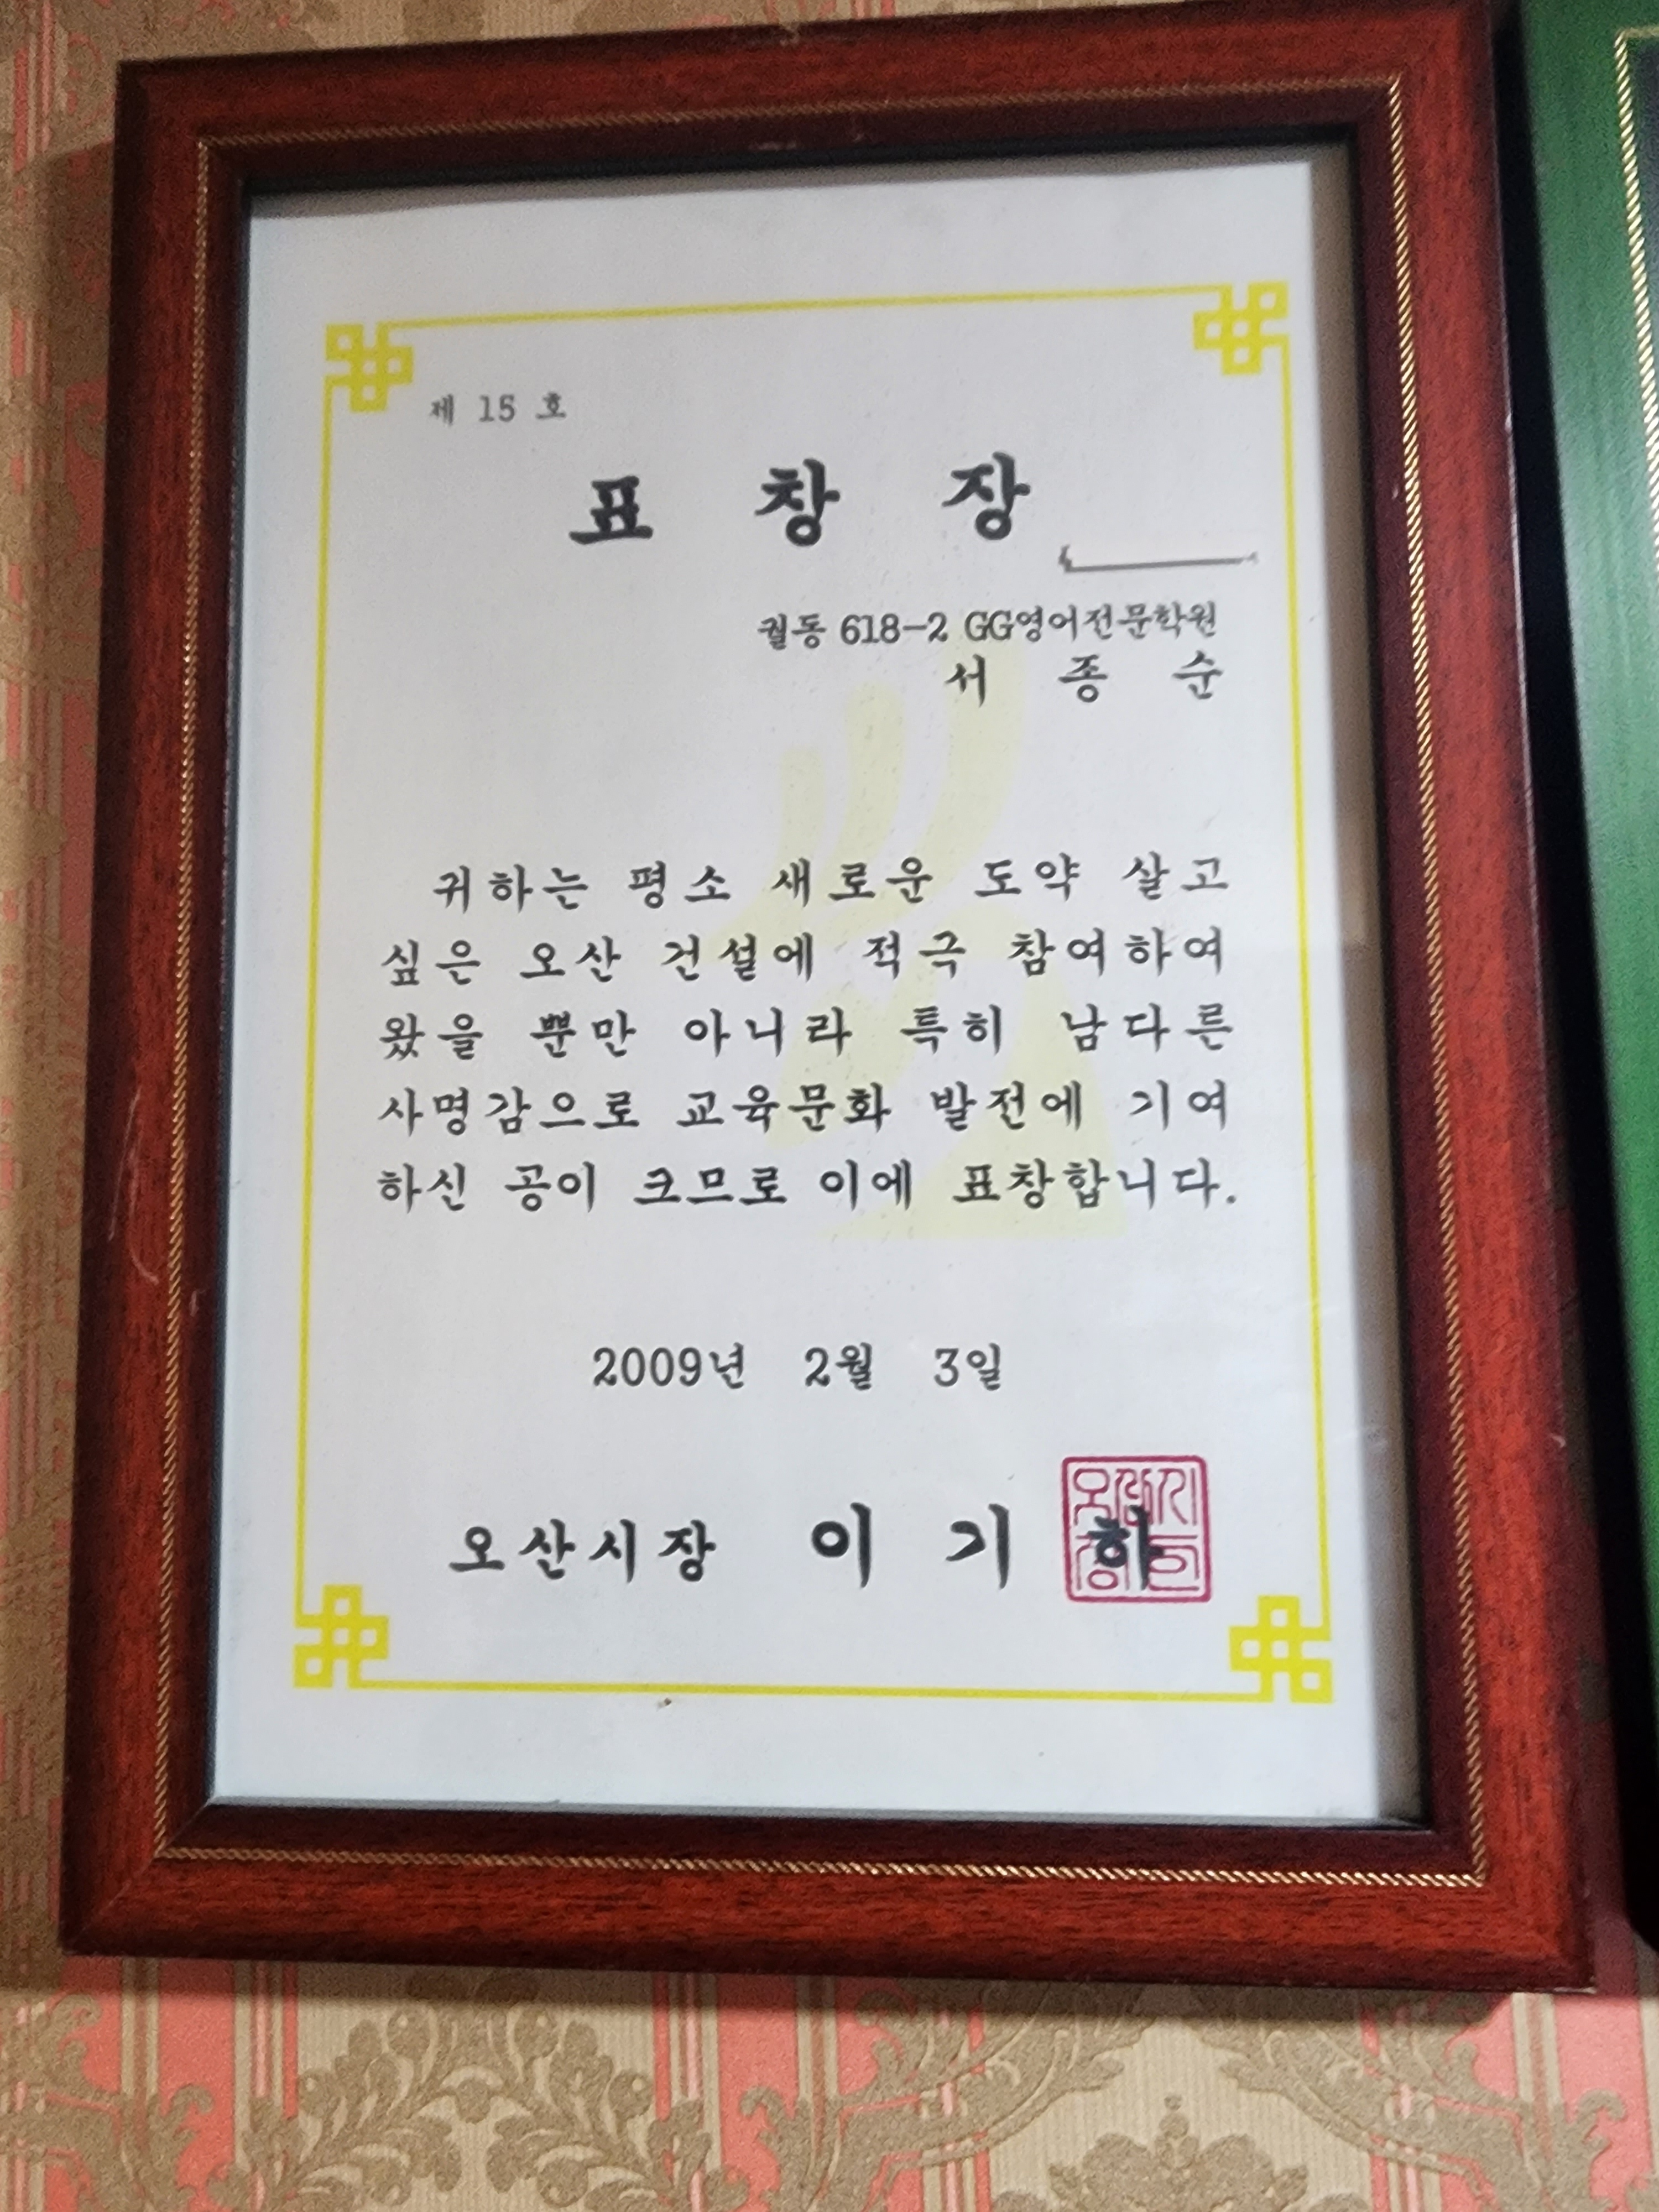 제 15 호
표 창 장
궐동 618-2 GG영어전문학원
서 종 순
귀하는 평소 새로운 도약 살고
싶은 오산 건설에 적극 참여하여
왔을 뿐만 아니라 특히 남다른
사명감으로 교육문화 발전에 기여
하신 공이 크므로 이에 표창합니다.
2009년 2월 3일
오산시장 이 기 하